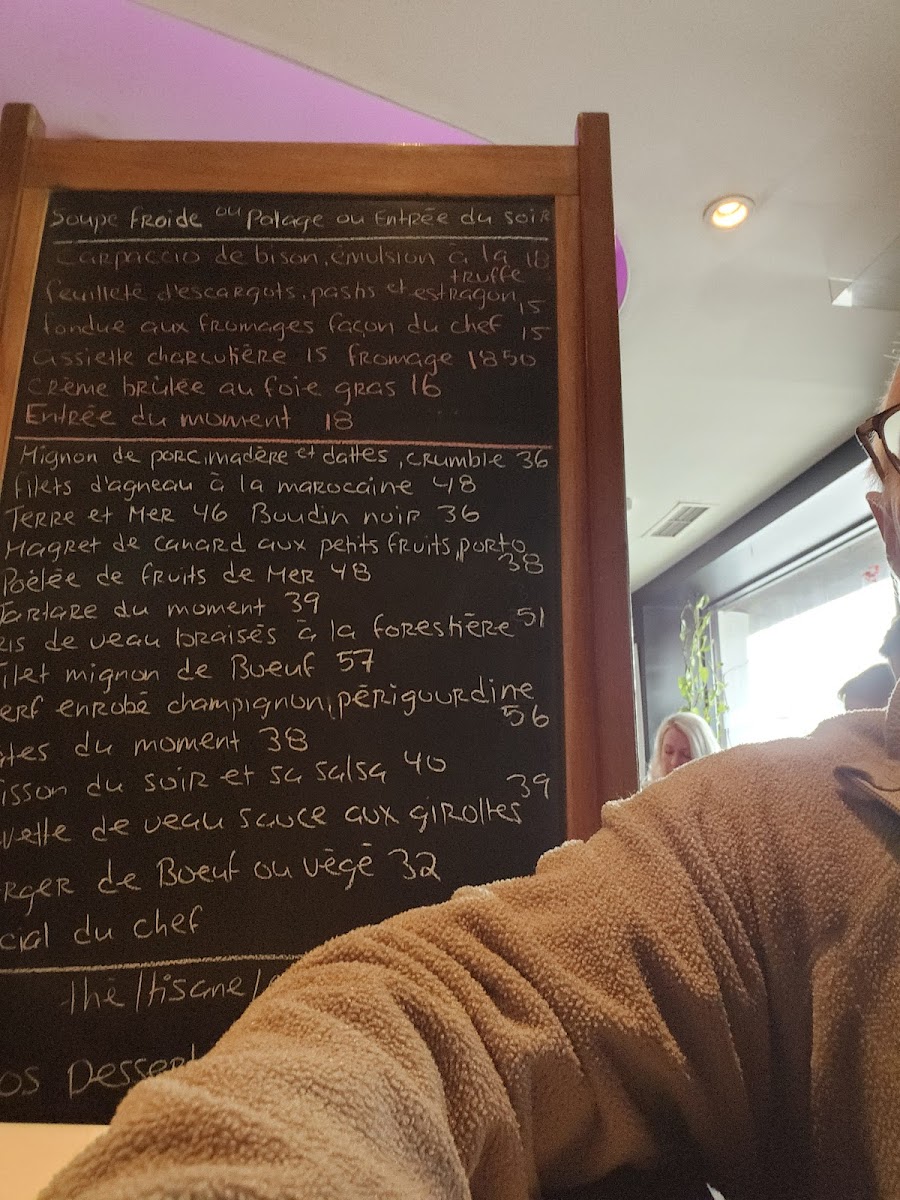 Soupe froide ou Potage ou Entrée du soir
Carpaccio de bison, émulsion à la truffe 18
feuilleté d'escargots, pastis et estragon 15
fondue aux fromages façon du chef 15
assiette charcutière 15 fromage 1850
crème brûlée au foie gras 16
Entrée du moment 18
Mignon de porc, madère et dattes, crumble 36
filets d'agneau à la marocaine 48
Terre et Mer 46 Boudin noir 36
Magret de canard aux petits fruits, porto 38
Poêlée de fruits de Mer 48
Tartare du moment 39
ris de veau braisés à la forestière 51
ilet mignon de Boeuf 57
erf enrobé champignon, périgourdine 56
tes du moment 38
isson du soir et sa salsa 40
vette de veau sauce aux girolles 39
rger de Boeuf ou végé 32
cial du chef
thé/tisane/
os Dessert